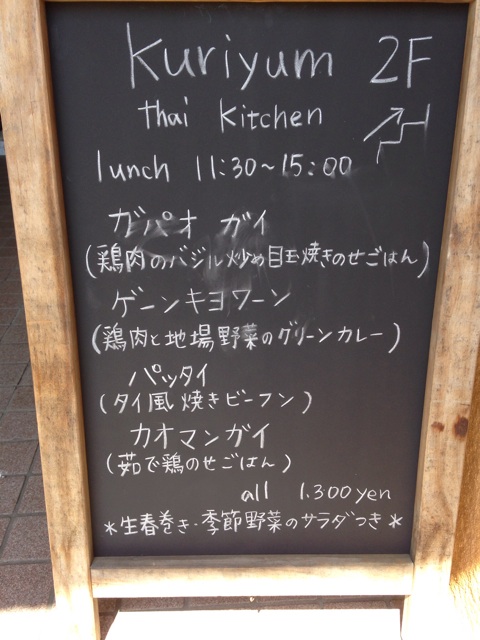 Kuriyum 2F
thai Kitchen
lunch 11:30～15:00
ガパオ ガイ
(鶏肉のバジル炒め目玉焼きのせごはん)
ゲーンキヨワーン
(鶏肉と地場野菜のグリーンカレー)
パッタイ
(タイ風焼きビーフン)
カオマンガイ
(茹で鶏のせごはん)
all 1.300yen
*生春巻き・季節野菜のサラダつき*